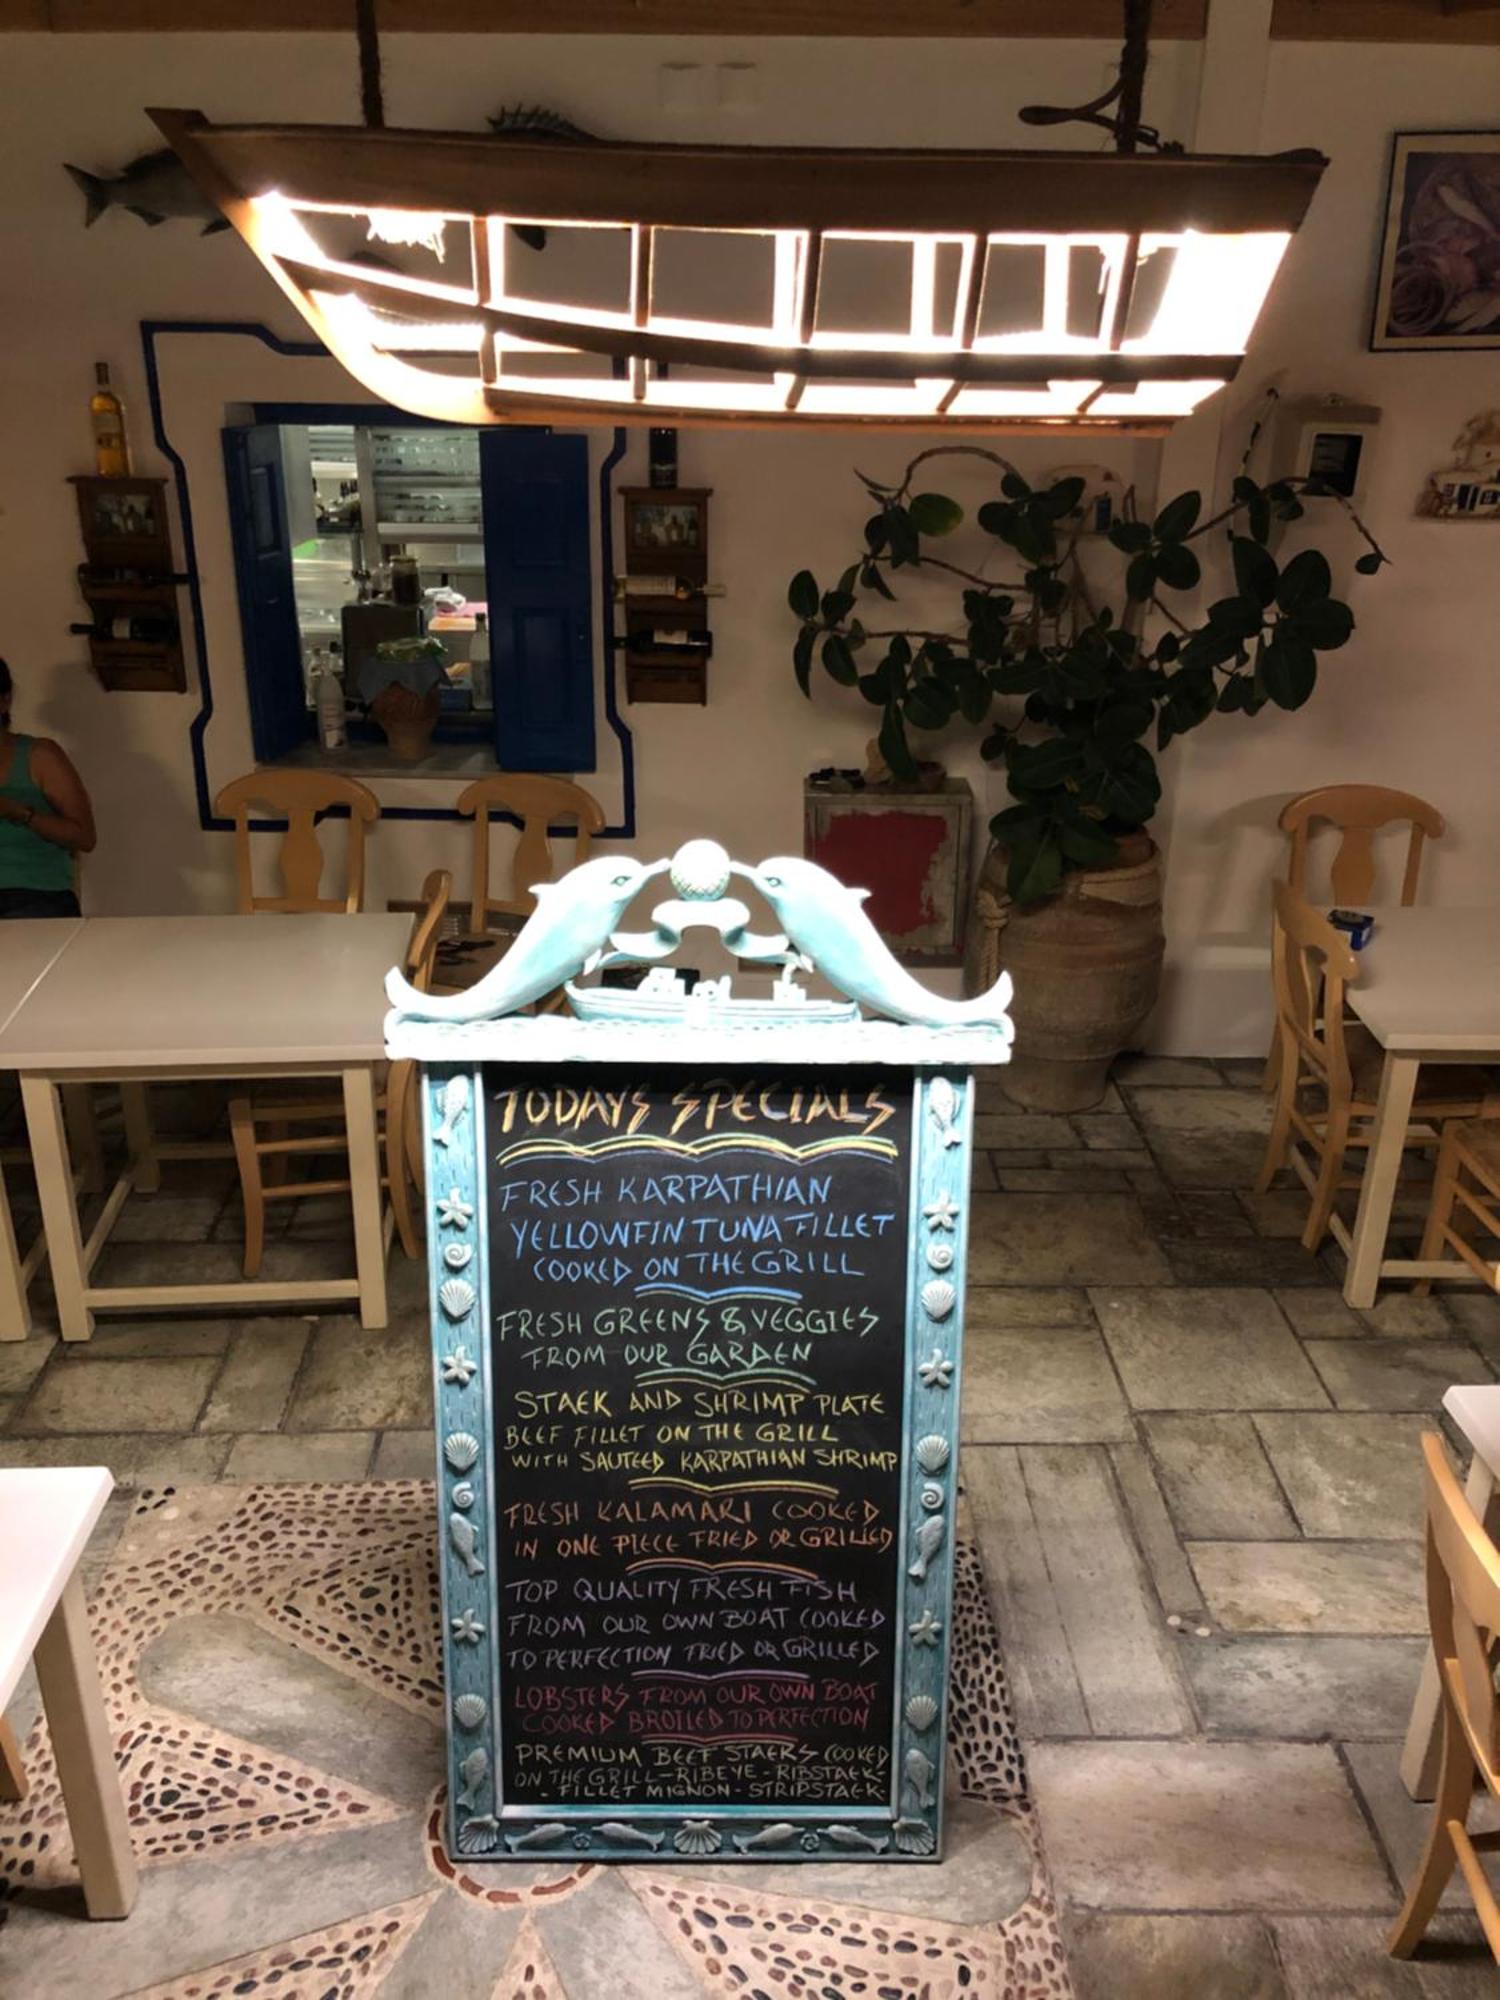 TODAYS SPECIALS
FRESH KARPATHIAN
YELLOWFIN TUNA FILLET
COOKED ON THE GRILL
FRESH GREENS & VEGGIES
FROM OUR GARDEN
STAEK AND SHRIMP PLATE
BEEF FILLET ON THE GRILL
WITH SAUTEED KARPATHIAN SHRIMP
FRESH KALAMARI COOKED
IN ONE PIECE FRIED OR GRILLED
TOP QUALITY FRESH FISH
FROM OUR OWN BOAT COOKED
TO PERFECTION FRIED OR GRILLED
LOBSTERS FROM OUR OWN BOAT
COOKED BROILED TO PERFECTION
PREMIUM BEEF STAEKS COOKED
ON THE GRILL - RIBEYE - RIBSTAEK -
- FILLET MIGNON - STRIPSTAEK -